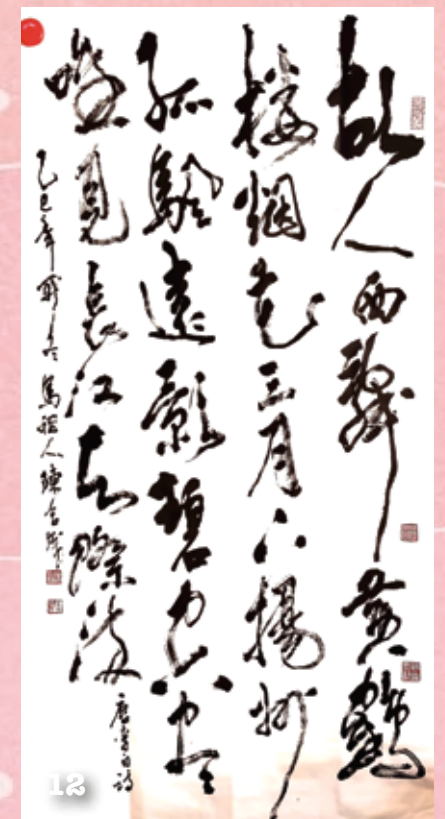 故人西辭黃鶴
樓烟花三月下揚州
孤颿遠影碧空盡
唯見長江天際流
唐李白詩
乙巳年 馬祖人陳
12